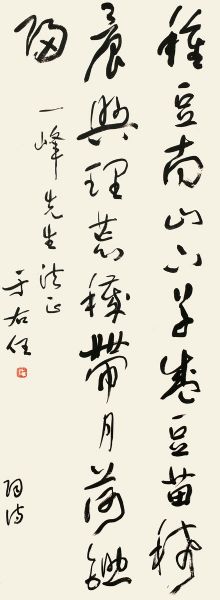 種豆南山下草盛豆苗稀
晨興理荒穢帶月荷鋤
歸
一峰先生法正
于右任
陶詩